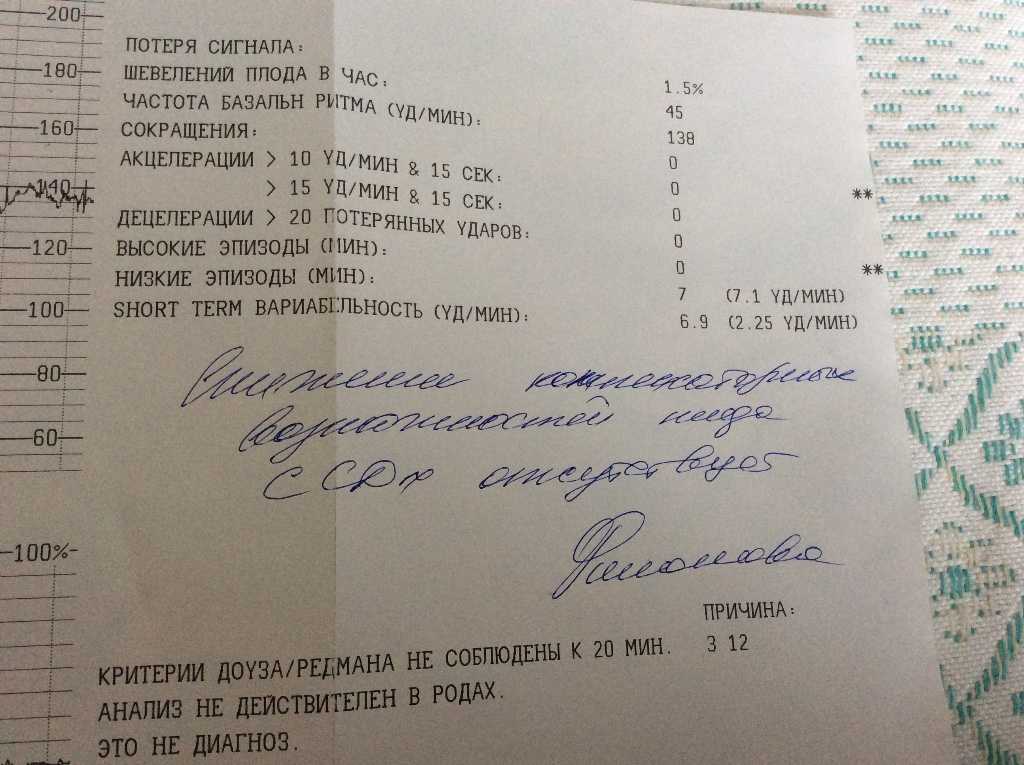 200
180
160
140
120
100
80
60
100%
ПОТЕРЯ СИГНАЛА: 1.5%
ШЕВЕЛЕНИЙ ПЛОДА В ЧАС: 45
ЧАСТОТА БАЗАЛЬН РИТМА (УД/МИН): 138
СОКРАЩЕНИЯ: 0
АКЦЕЛЕРАЦИИ > 10 УД/МИН & 15 СЕК: 0 **
> 15 УД/МИН & 15 СЕК: 0
ДЕЦЕЛЕРАЦИИ > 20 ПОТЕРЯННЫХ УДАРОВ: 0
ВЫСОКИЕ ЭПИЗОДЫ (МИН): 0 **
НИЗКИЕ ЭПИЗОДЫ (МИН): 7 (7.1 УД/МИН)
SHORT TERM ВАРИАБЕЛЬНОСТЬ (УД/МИН): 6.9 (2.25 УД/МИН)
Снижение компенсаторных
возможностей плода
отсутствует
ПРИЧИНА:
КРИТЕРИИ ДОУЗА/РЕДМАНА НЕ СОБЛЮДЕНЫ К 20 МИН. 3 12
АНАЛИЗ НЕ ДЕЙСТВИТЕЛЕН В РОДАХ.
ЭТО НЕ ДИАГНОЗ.